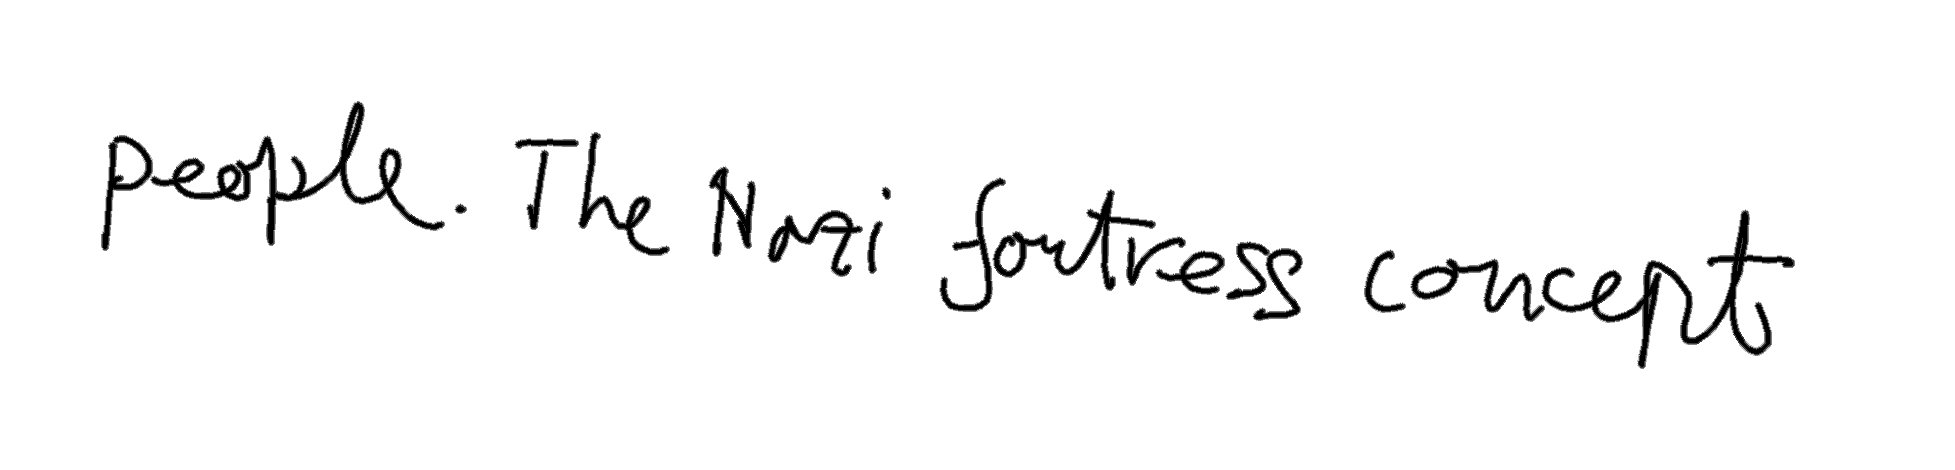 people. The Nazi fortress concept